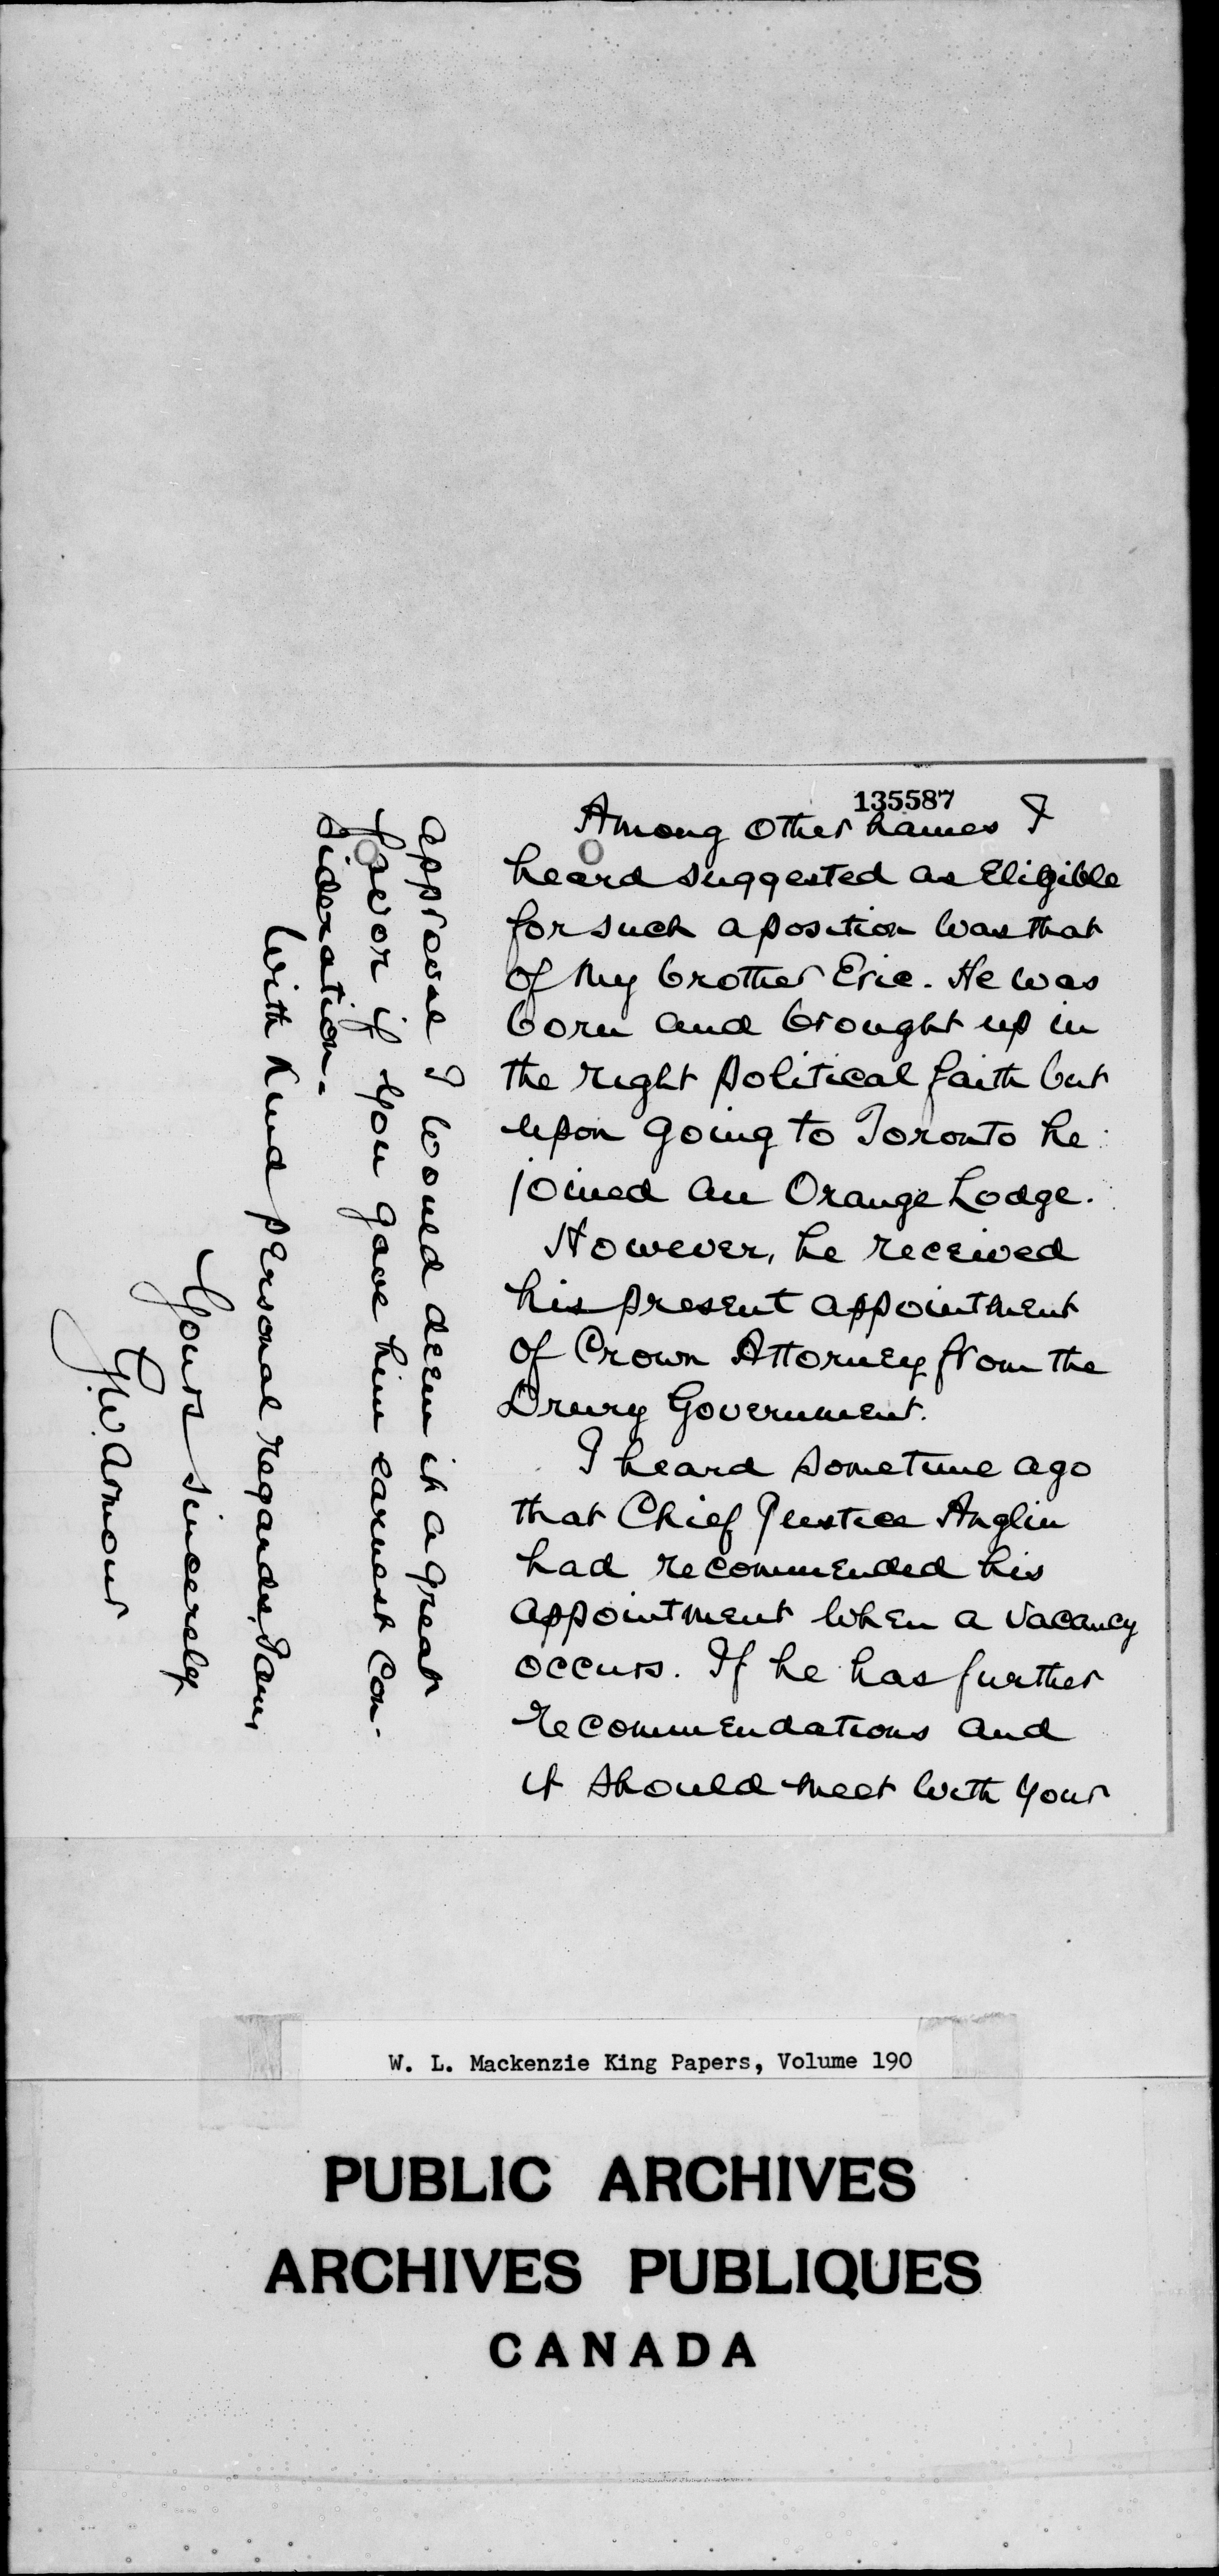 135587
Among other names I
heard suggested as Eligible
for such a position was that
of my brother Eric. He was
born and brought up in
the right political faith but
upon going to Toronto he
joined an Orange Lodge.
However, he received
his present appointment
of Crown Attorney from the
Drury Government.
I heard sometime ago
that Chief Justice Anglin
had recommended his
appointment when a vacancy
occurs. If he has further
recommendations and
it should meet with your
approval I would deem it a great
favor if you gave him earnest con-
sideration.
With kind personal regards, I am,
Yours sincerely
Armour
W. L. Mackenzie King Papers, Volume 190
PUBLIC ARCHIVES
ARCHIVES PUBLIQUES
CANADA